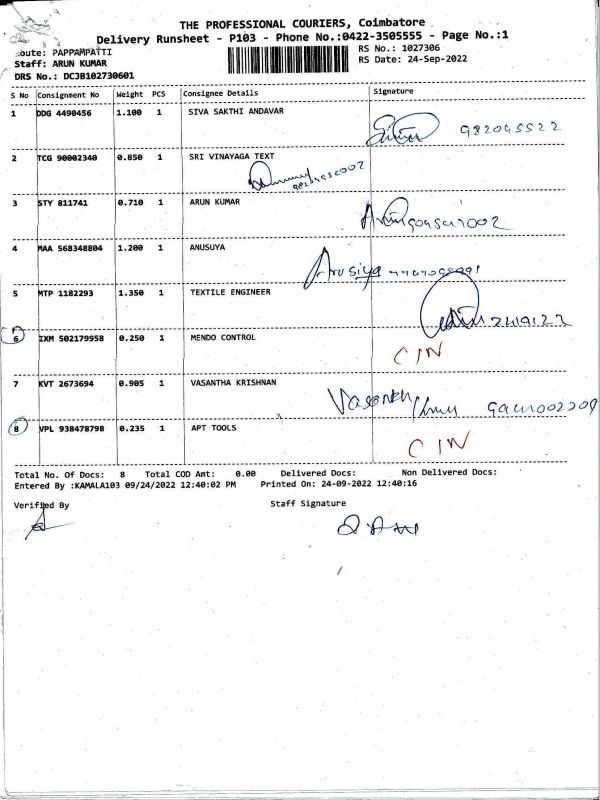 THE PROFESSIONAL COURIERS, Coimbatore
Delivery Runsheet - P103 - Phone No.:0422-3505555 - Page No.:1
oute: PAPPAMPATTI RS No.: 1027306
Staff: ARUN KUMAR RS Date: 24-Sep-2022
DRS No.: DCJB102730601
S No Consignment No Weight PCS Consignee Details Signature
1 DDG 4490456 1.100 1 SIVA SAKTHI ANDAVAR
2 TCG 90002340 0.850 1 SRI VINAYAGA TEXT
3 STY 811741 0.710 1 ARUN KUMAR
4 MAA 568348804 1.200 1 ANUSUYA
Anusiya
5 MTP 1182293 1.350 1 TEXTILE ENGINEER
6 IXM 502179958 0.250 1 MENDO CONTROL
C IN
7 KVT 2673694 0.905 1 VASANTHA KRISHNAN
8 VPL 938478798 0.235 1 APT TOOLS
C IN
Total No. Of Docs: 8 Total COD Amt: 0.00 Delivered Docs: Non Delivered Docs:
Entered By :KAMALA103 09/24/2022 12:40:02 PM Printed On: 24-09-2022 12:40:16
Verified By Staff Signature